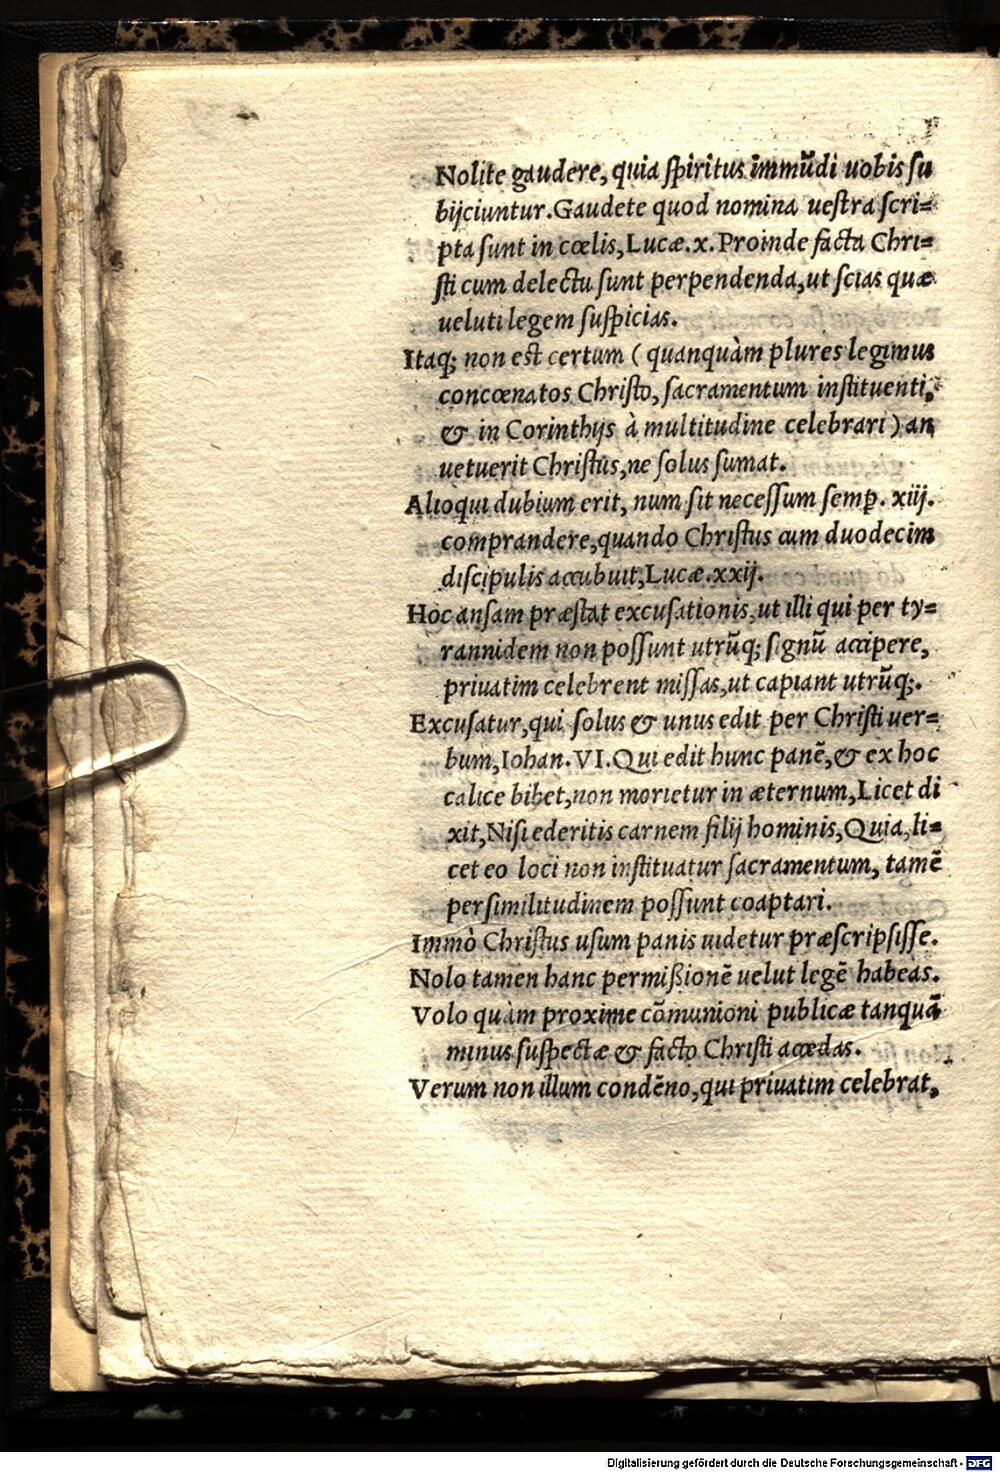 Nolite gaudere, quia ſpiritus immũdi uobis ſu
bijciuntur. Gaudete quod nomina ueſtra ſcri=
pta ſunt in cœlis, Lucæ. x. Proinde facta Chri=
ſti cum delectu ſunt perpendenda, ut ſcias quæ
ueluti legem ſuſpicias.
Itaq; non eſt certum ( quanquàm plures legimus
concœnatos Chriſto, ſacramentum inſtituenti,
& in Corinthijs à multitudine celebrari ) an
uetuerit Chriſtus, ne ſolus ſumat.
Alioqui dubium erit, num ſit neceſſum ſemꝑ. xiij.
comprandere, quando Chriſtus cum duodecim
diſcipulis accubuit, Lucæ. xxij.
Hoc anſam præſtat excuſationis, ut illi qui per ty=
rannidem non poſſunt utrũq; ſignũ accipere,
priuatim celebrent miſſas, ut capiant utrũq;.
Excuſatur, qui ſolus & unus edit per Chriſti uer=
bum, Iohan. VI. Qui edit hunc panẽ, & ex hoc
calice bibet, non morietur in æternum, Licet di
xit, Niſi ederitis carnem filij hominis, Quia, li=
cet eo loci non inſtituatur ſacramentum, tamẽ
per ſimilitudinem poſſunt coaptari.
Immò Chriſtus uſum panis uidetur præſcripſiſſe.
Nolo tamen hanc permißionẽ uelut legẽ habeas.
Volo quàm proxime cõmunioni publicæ tanquã
minus ſuſpectæ & facto Chriſti accedas.
Verum non illum condẽno, qui priuatim celebrat,
Digitalisierung gefördert durch die Deutsche Forschungsgemeinschaft - DFG